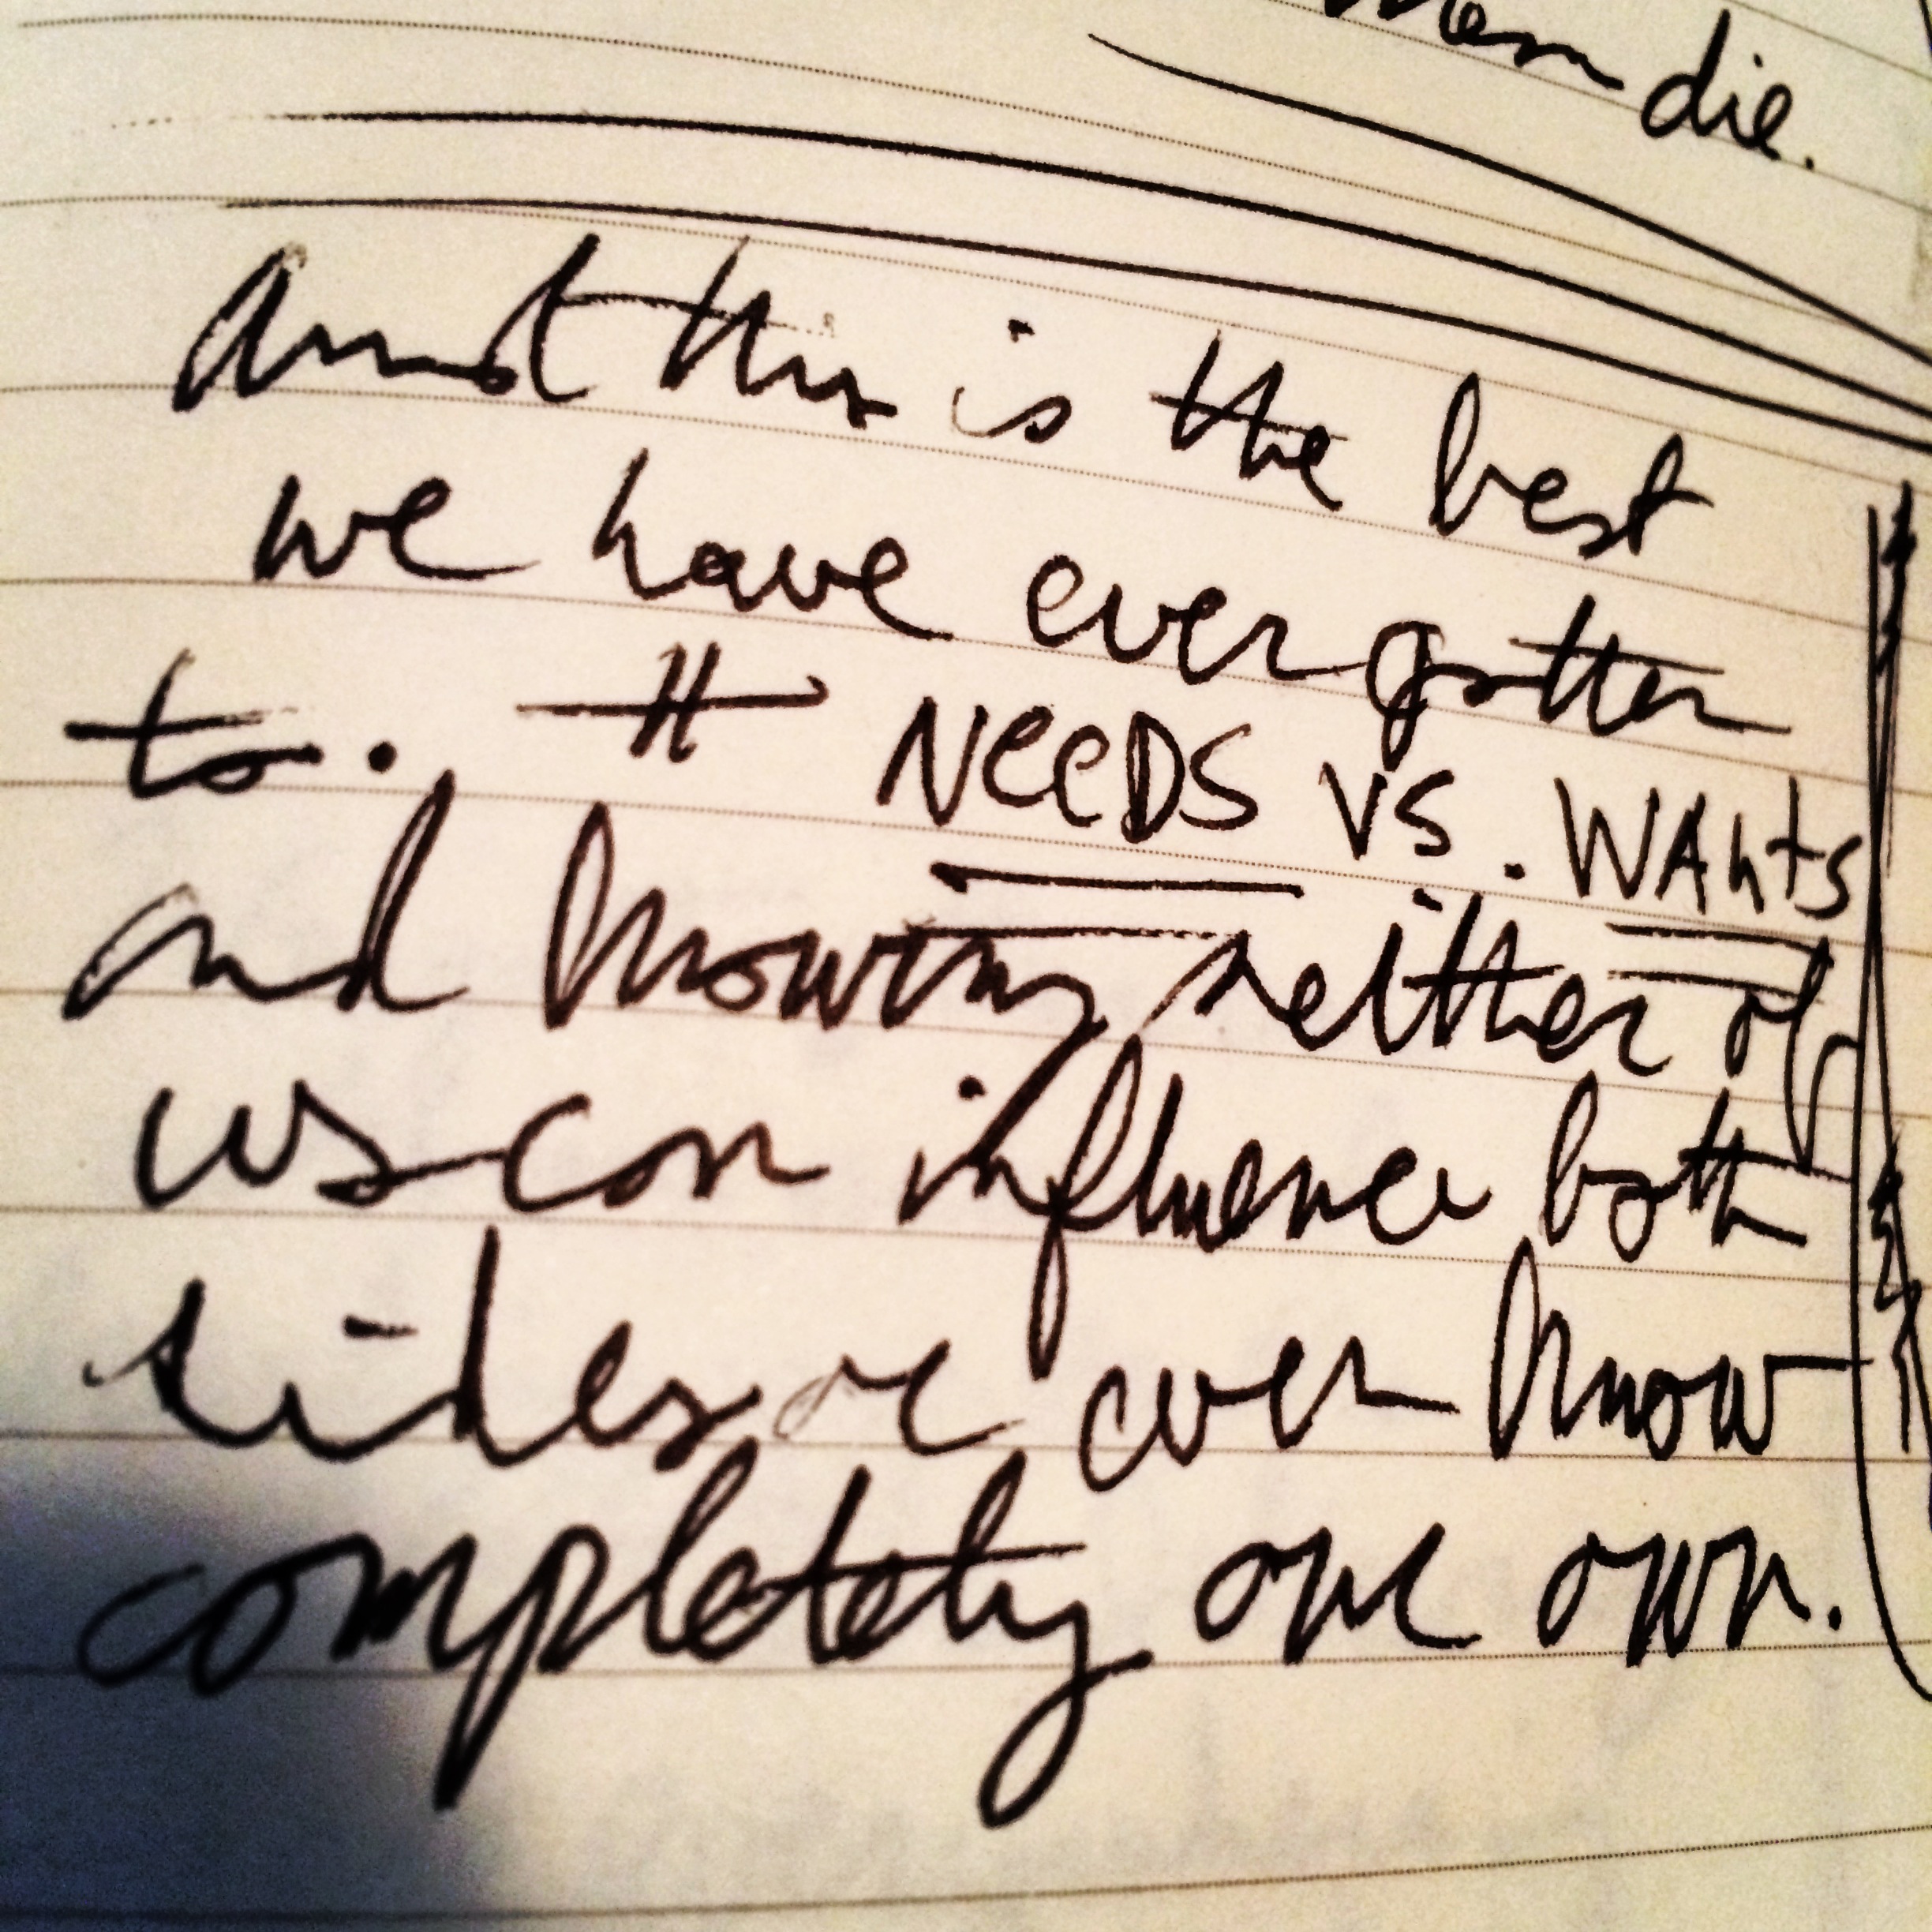 die.
and this is the best
we have ever gotten
to. # NEEDS vs. WANTS
and knowing neither of
us can influence both
sides or even know
completely our own.